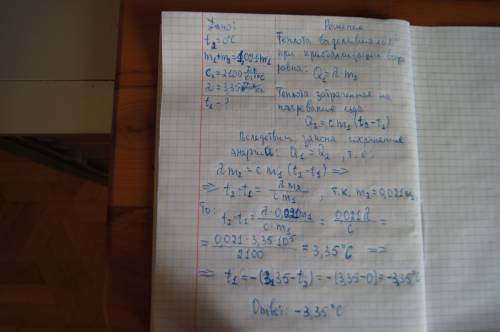 Дано:
t₂=0°C
m₁+m₂=1,021m₁
c₁=2100 Дж/кг·°C
t₁ - ?
Решение
Теплота выделившаяся
при кристаллизации воды
равна: Q₁=λ·m₂
Теплота затраченная на
нагревание льда
Q₂=c m₁(t₂-t₁)
Вследствии закона сохранения
энергии: Q₁=Q₂, т.е.
λm₂=c m₁(t₂-t₁) =>
=> t₂-t₁= λm₂/c m₁, т.к. m₂=0,021m₁
То: t₂-t₁= λ·0,021m₁/c·m₁ = 0,021λ/c =
= 0,021·3,35·10⁵/2100 = 3,35°C =>
=> t₁=-(3,35-t₂)=-(3,35-0)=-3,35°C
Ответ: -3,35°C